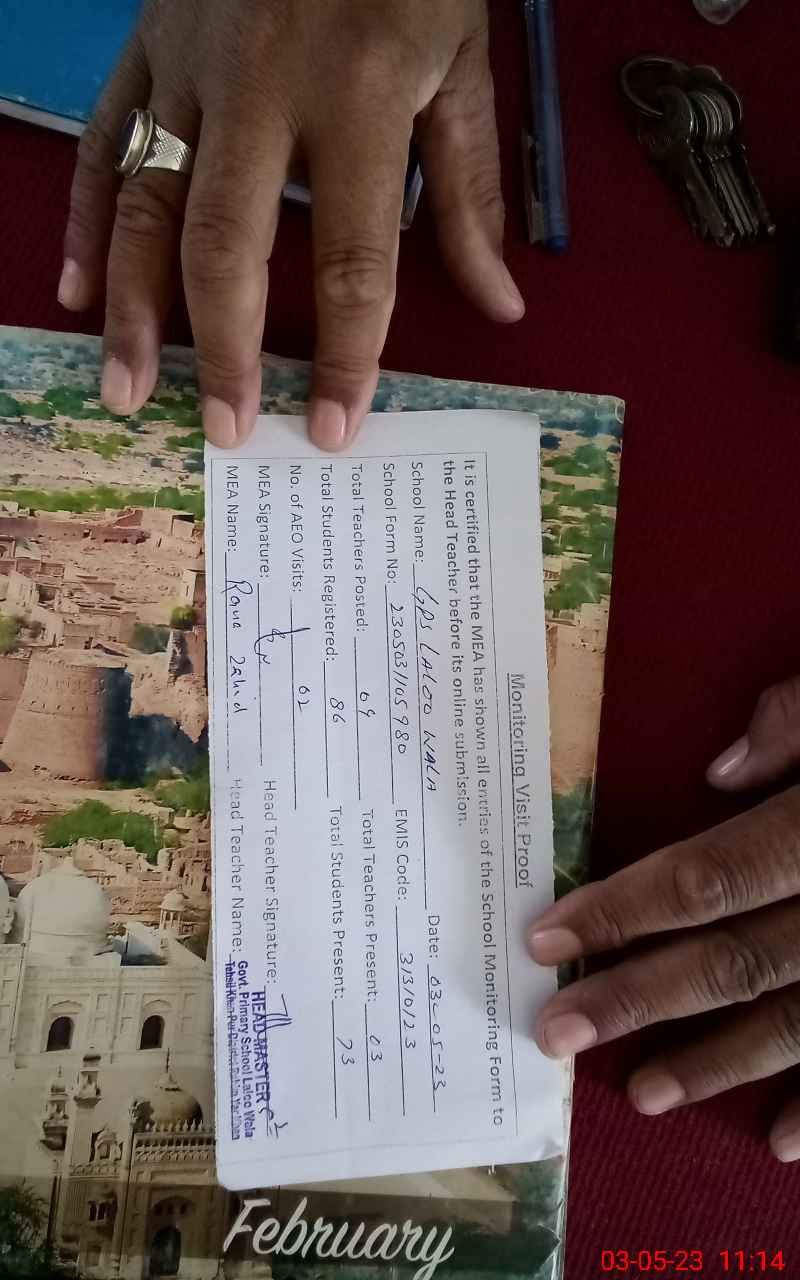 Monitoring Visit Proof
It is certified that the MEA has shown all entries of the School Monitoring Form to
the Head Teacher before its online submission.
School Name: GPS LALOO WALA Date: 03-05-23
School Form No: 2305031105980 EMIS Code: 31310123
Total Teachers Posted: 04 Total Teachers Present: 03
Total Students Registered: 86 Total Students Present: 73
No. of AEO Visits: 02
MEA Signature: Head Teacher Signature:
MEA Name: Rana Zahid Head Teacher Name:
HEAD MASTER
Govt. Primary School Laloo Wala
Tehsil Khan Pur District Rahim Yar Khan
February
03-05-23 11:14